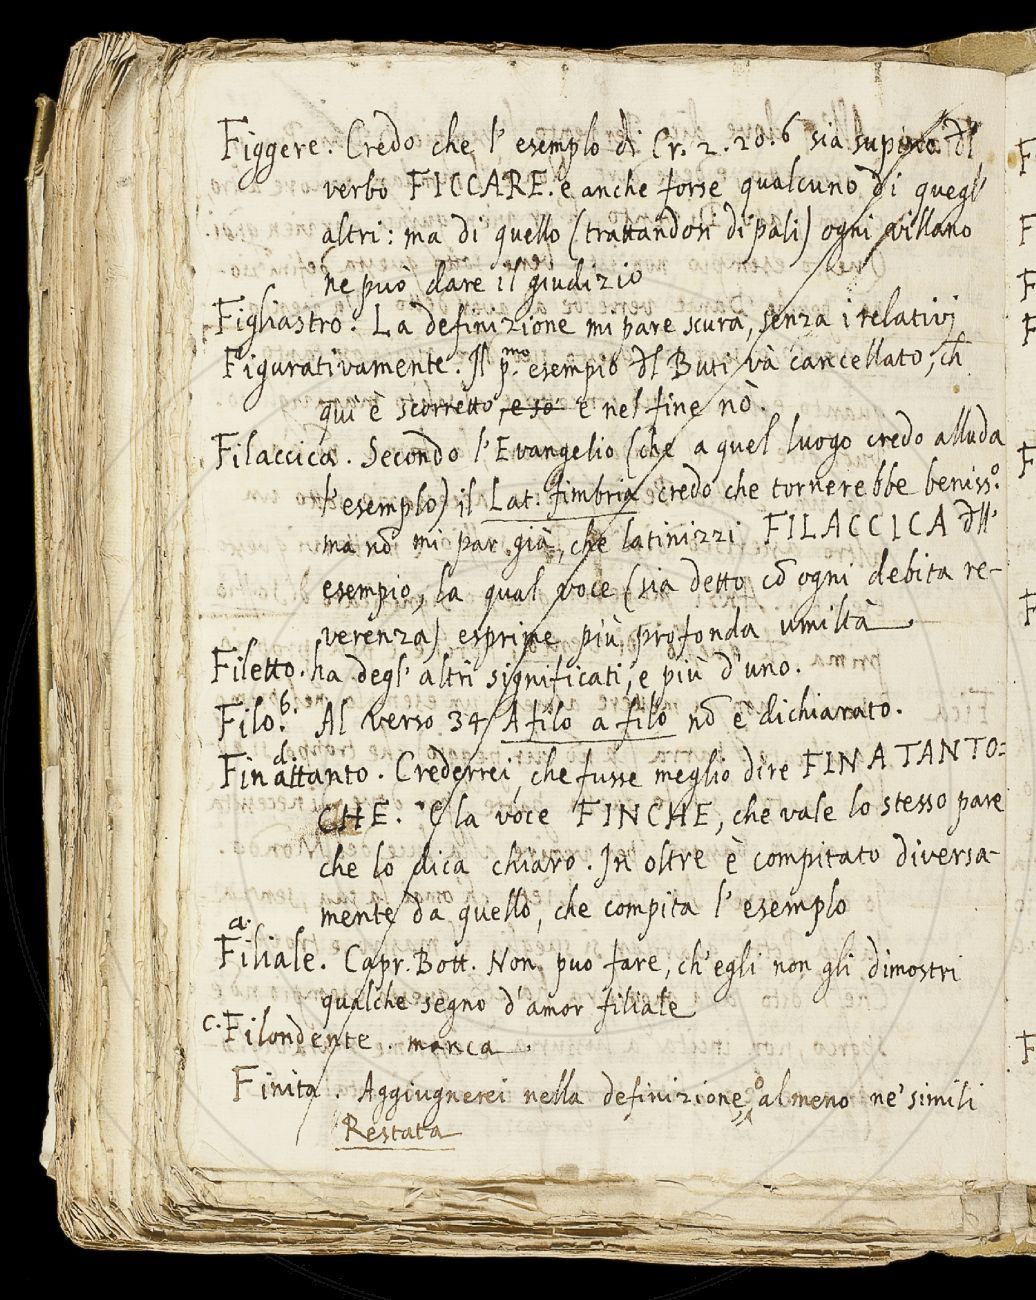 Figgere. Credo che l' esemplo di Cr. 2. 20. 6 sia supino dl
verbo FICCARE. e anche forse qualcuno di quegl'
altri: ma di quello (trattandosi di pali) ogni villano
ne può dare il giudizio
Figliastro. La definizione mi pare scura, senza i relativi
Figurativamente. Il p.mo esempio dl Buti và cancellato, ch
qui è scorretto, e so e nel fine nò.
Filaccica. Secondo l'Evangelio (che a quel luogo credo alluda
l'esemplo) il Lat. fimbria credo che tornerebbe beniss.o
ma nō mi par già, che latinizzi FILACCICA dll'
esempio, la qual voce (sia detto cō ogni debita re-
verenza) esprime più profonda umiltà.
Filetto. ha degl' altri significati, e più d'uno.
b. Filo. Al verso 34 A filo a filo nō è dichiarato.
d. Finattanto. Crederrei, che fusse meglio dire FINATANTO=
CHE. E la voce FINCHE, che vale lo stesso pare
che lo dica chiaro. In oltre è compitato diversa-
mente da quello, che compita l' esemplo
a.
Filiale. Capr. Bott. Non puo fare, ch'egli non gli dimostri
qualche segno d'amor filiale
c. Filondente. manca.
Finita. Aggiugnerei nella definizione, o almeno ne' simili
Restata